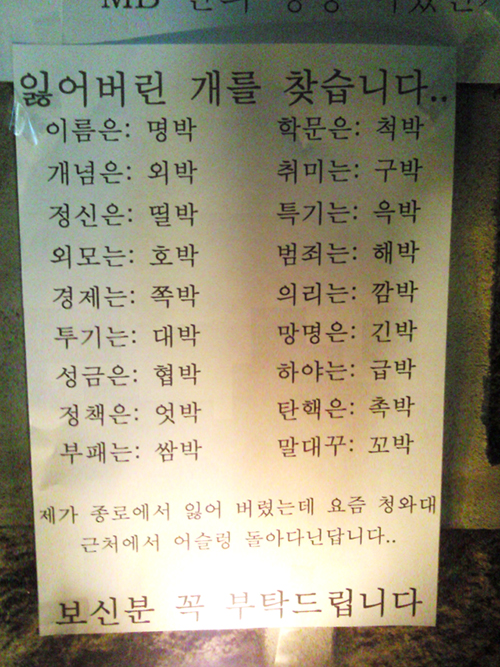 MB
잃어버린 개를 찾습니다..
이름은: 명박 학문은: 척박
개념은: 외박 취미는: 구박
정신은: 떨박 특기는: 윽박
외모는: 호박 범죄는: 해박
경제는: 쪽박 의리는: 깜박
투기는: 대박 망명은: 긴박
성금은: 협박 하야는: 급박
정책은: 엇박 탄핵은: 촉박
부패는: 쌈박 말대꾸: 꼬박
제가 종로에서 잃어 버렸는데 요즘 청와대
근처에서 어슬렁 돌아다닌답니다..
보신분 꼭 부탁드립니다